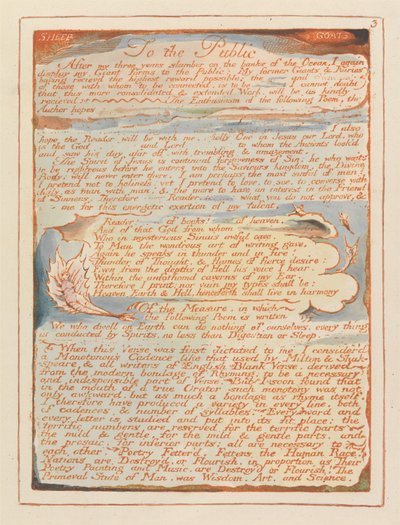 3
SHEEP GOATS
To the Public
After my three years slumber on the banks of the Ocean, I again
display my Giant forms to the Public: My former Giants & Fairies
having reciev'd the highest reward possible: the and
of those with whom to be connected, is to be I cannot doubt
that this more consolidated & extended Work, will be as kindly
recieved The Enthusiasm of the following Poem, the
Author hopes
I also
hope the Reader will be with me, wholly One in Jesus our Lord, who
is the God and Lord to whom the Ancients look'd
and saw his day afar off, with trembling & amazement.
The Spirit of Jesus is continual forgiveness of Sin: he who waits
to be righteous before he enters into the Saviours kingdom, the Divine
Body; will never enter there. I am perhaps the most sinful of men!
I pretend not to holiness! yet I pretend to love, to see, to converse with
daily, as man with man, & the more to have an interest in the Friend
of Sinners. Therefore Reader, what you do not approve, &
me for this energetic exertion of my talent.
Reader! of books! of heaven,
And of that God from whom
Who in mysterious Sinais awful cave
To Man the wond'rous art of writing gave,
Again he speaks in thunder and in fire!
Thunder of Thought, & flames of fierce desire:
Even from the depths of Hell his voice I hear,
Within the unfathomd caverns of my Ear.
Therefore I print; nor vain my types shall be:
Heaven, Earth & Hell, henceforth shall live in harmony
Of the Measure, in which
the following Poem is written
We who dwell on Earth can do nothing of ourselves, every thing
is conducted by Spirits, no less than Digestion or Sleep.
When this Verse was first dictated to me I consider'd
a Monotonous Cadence like that used by Milton & Shak-
speare & all writers of English Blank Verse, derived
from the modern bondage of Rhyming; to be a necessary
and indispensible part of Verse. But I soon found that
in the mouth of a true Orator such monotony was not
only awkward, but as much a bondage as rhyme itself.
I therefore have produced a variety in every line, both
of cadences & number of syllables. Every word and
every letter is studied and put into its fit place: the
terrific numbers are reserved for the terrific parts
the mild & gentle, for the mild & gentle parts, and
the prosaic, for inferior parts: all are necessary to
each other. Poetry Fetter'd, Fetters the Human Race!
Nations are Destroy'd, or Flourish, in proportion as Their
Poetry Painting and Music, are Destroy'd or Flourish! The
Primeval State of Man, was Wisdom, Art, and Science.